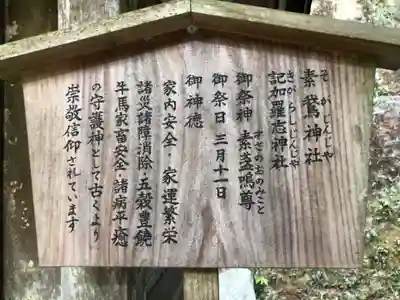 そがじんじや
素鵞神社
きがらしじんじや
記加羅志神社
すさのおのみこと
御祭神 素盞嗚尊
御祭日 三月十一日
御神徳
家内安全・家運繁栄
諸災諸障消除・五穀豊饒
牛馬家畜安全・諸病平癒
の守護神として古くより
崇敬信仰されています